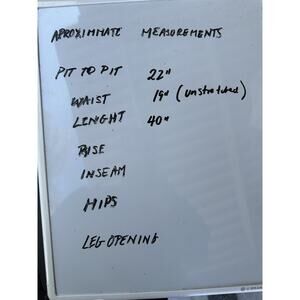 APROXIMMATE MEASUREMENTS
PIT TO PIT 22"
WAIST 19" (unstretched)
LENGHT 40"
RISE
INSEAM
HIPS
LEG OPENING